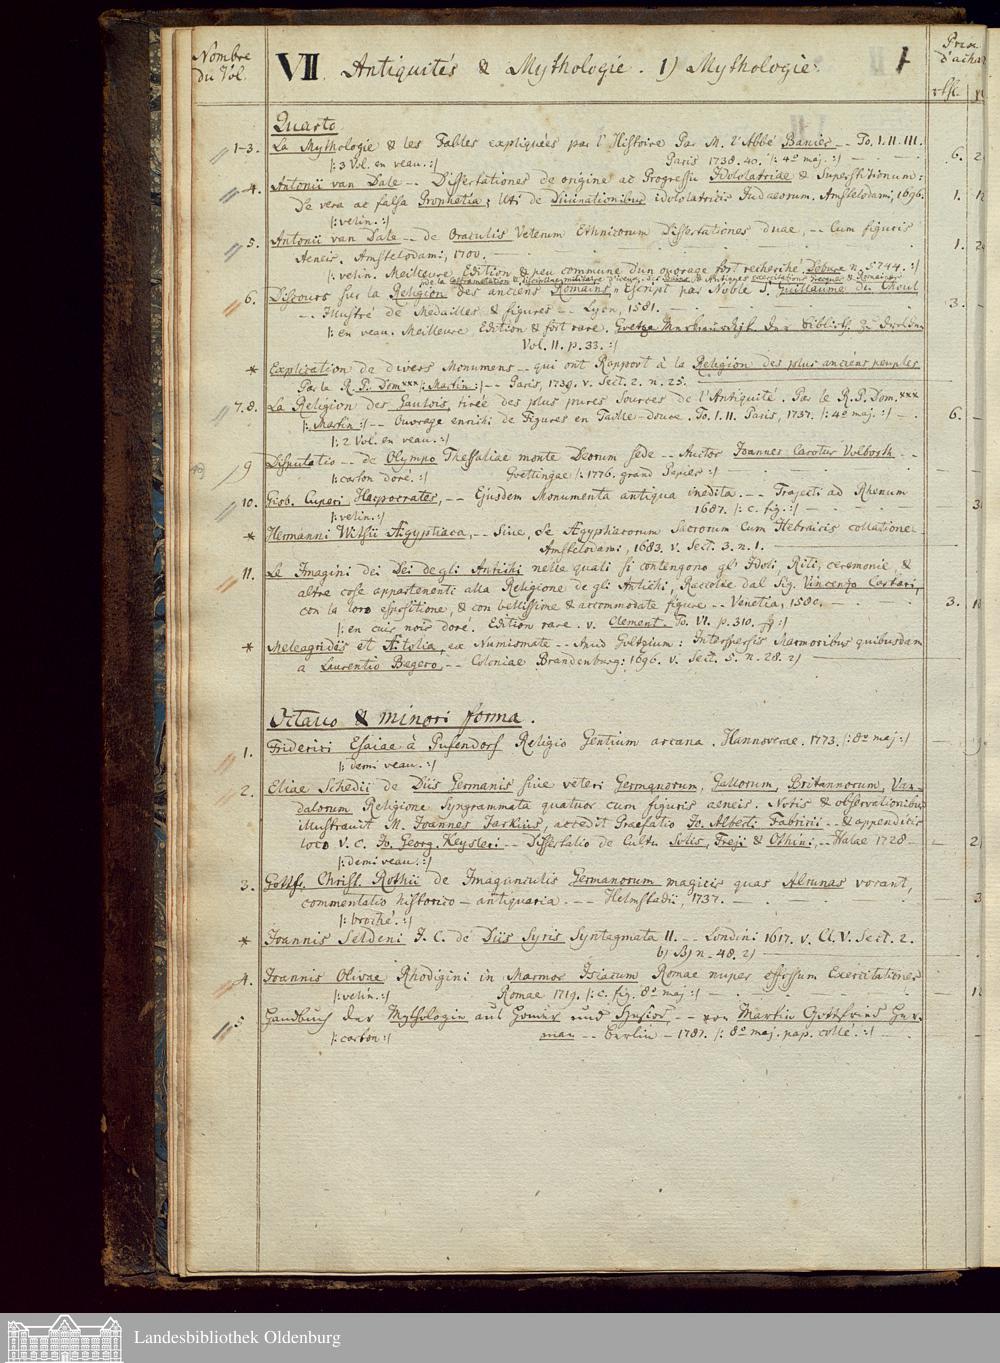 Nombre
du Vol.
VII. Antiquités & Mythologie. 1) Mythologie.
1
Prix
d'achat
rthl.
Quarto
1-3. La Mythologie & les Fables expliquées par l'Histoire Par M. l'Abbé Banier -- To. I. II. III.
|: 3 Vol. en veau. :| Paris 1738. 40. |: 4º maj. :| 6. 2
4. Antonii van Dale -- Dissertationes de origine ac Progressu Idololatriae & Superstitionum:
De vera ac falsa Prophetia; Uti de Divinationibus idololatricis Judaeorum. Amstelodami, 1696. 1.
|: velin. :|
5. Antonii van Dale -- de Oraculis Veterum Ethnicorum Dissertationes duae, -- Cum figuris 1. 2
Aeneis. Amstelodami, 1700.
|: velin. Meilleure Edition & peu commune d'un ouvrage fort recherché. Debure n. 5744. :|
de la Castrametation & discipline militaire d'iceux, des Bains & Antiques exercitations Grecques & Romaines.
6. Discours sur la Religion des anciens Romains, Escript par Noble S. Guillaume du Choul 3.
-- Illustré de Medailles & figures -- Lyon, 1581.
|: en veau. Meilleure Edition & fort rare. Goetze Merkwürdigk. der Biblioth. zu Dresden
Vol. II. p. 33. :|
* Explication de divers Monumens -- qui ont Rapport à la Religion des plus anciens peuples
Par le R. P. Dom xxx |: Martin :| -- Paris, 1739. v. Sect. 2. n. 25.
7.8. La Religion des Gaulois, tirée des plus pures Sources de l'Antiquité. Par le R. P. Dom. xxx
|: Martin :| -- Ouvrage enrichi de Figures en Taille-douce. To. I. II. Paris, 1737. |: 4º maj. :| 6.
|: 2 Vol. en veau. :|
9 Disputatio -- de Olympo Thessaliae monte Deorum sede -- Auctor Joannes Carolus Volborth
|: carton doré. :| Goettingae |: 1776. grand Papier :|
10. Gisb. Cuperi Harpocrates, -- Ejusdem Monumenta antiqua inedita. -- Trajecti ad Rhenum
|: velin. :| 1687. |: c. fig. :| 3
* Hermanni Witsii Ægyptiaca, -- Sive, de Ægyptiacorum Sacrorum Cum Hebraicis collatione
Amstelodami, 1683. v. Sect. 3. n. 1.
11. Le Imagini dei Dei degli Antichi nelle quali si contengono gl' Idoli, Riti, ceremonie, &
altre cose appartenenti alla Religione degli Antichi, Raccolte dal Sig. Vincenzo Cartari,
con la loro espositione, & con bellissime & accommodate figure -- Venetia, 1580. 3.
|: en cuir noir doré. Edition rare. v. Clement. To. VI. p. 310. :|
* Meleagrides et Ætolia, ex Numismate -- Apud Goltzium: Interspersis Marmoribus quibusdam
a Laurentio Begero, -- Coloniae Brandenburg: 1696. v. Sect. 5. n. 28. 2)
Octavo & minori forma.
1. Friderici Esaiae à Pufendorf Religio Gentium arcana. Hannoverae. 1773. |: 8º maj :|
|: demi veau. :|
2. Eliae Schedii de Diis Germanis sive veteri Germanorum, Gallorum, Britannorum, Van-
dalorum Religione Syngrammata quatuor cum figuris aeneis. Notis & observationibus
Illustravit M. Joannes Jarkius, accedit Praefatio Jo. Alberti Fabricii -- & appendicis
loco V. C. Jo. Georg. Keysleri -- Dissertatio de Cultu Solis, Freji & Othini, -- Halae 1728 2
|: demi veau. :|
3. Gottfr. Christ. Rothii de Imagunculis Germanorum magicis quas Alrunas vocant,
commentatio historico-antiquaria. -- Helmstadii, 1737. 3
|: broché. :|
* Joannis Seldeni J. C. de Diis Syris Syntagmata II. -- Londini 1617. v. Cl. V. Sect. 2.
b) B) n. 48. 2)
4. Joannis Olivae Rhodigini in Marmor Isiacum Romae nuper effossum Exercitationes
|: velin. :| Romae 1719. |: c. fig. 8º maj :|
5 Handbuch der Mythologie aus Homer und Hesiod, -- von Martin Gottfried Her-
|: carton :| man -- Berlin -- 1787. |: 8º maj. pap. collé. :|
Landesbibliothek Oldenburg